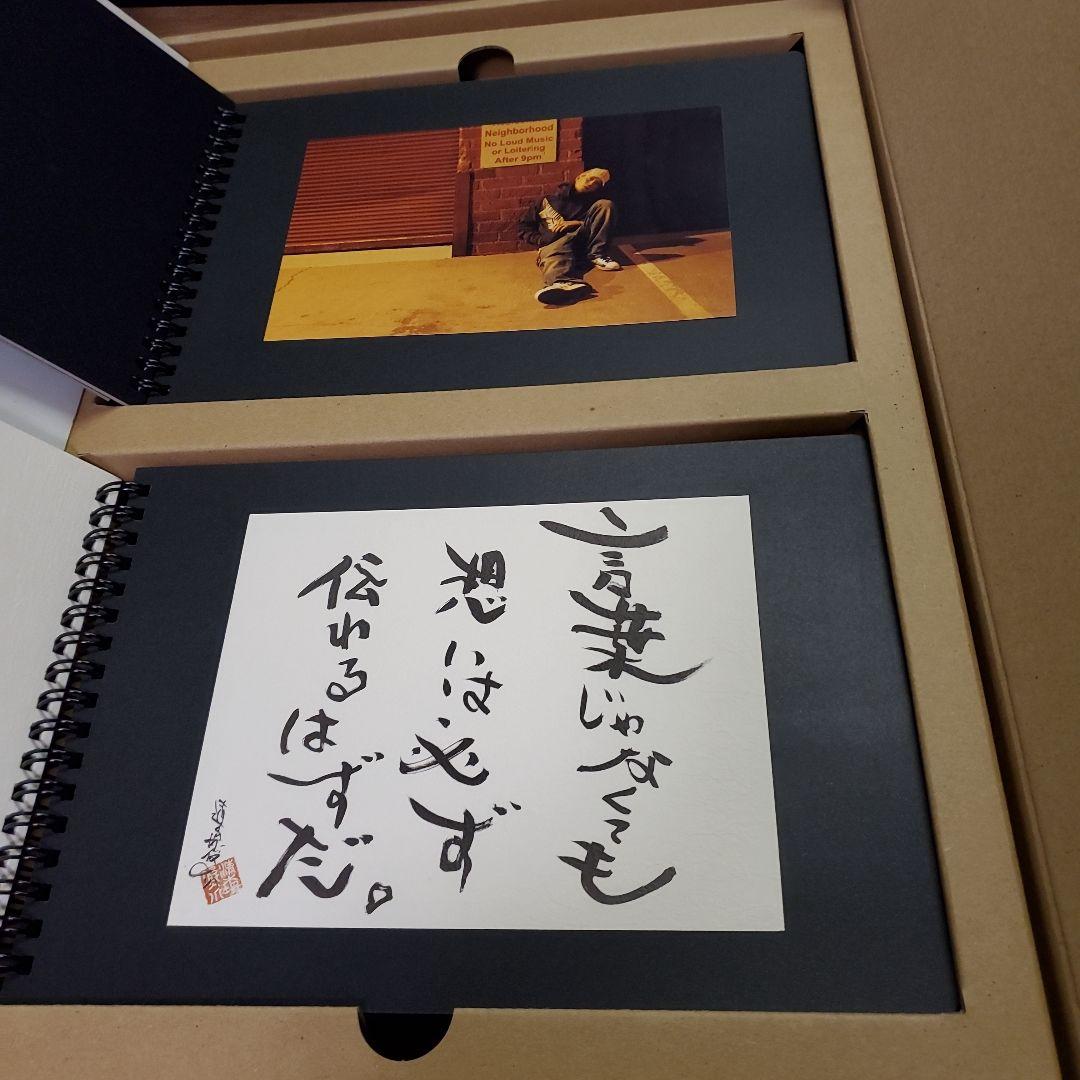 Neighborhood
No Loud Music
or Loitering
After 9pm
言葉じゃなくても
想いは、必ず
伝わるはずだ。